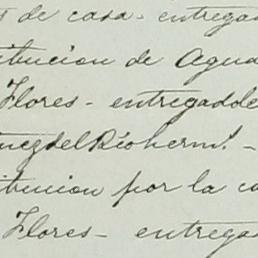 s de casa - entregad
itucion de Agua
Flores - entregadode
inezdelRioherm! -
titucion por la ca
Flores - entrega